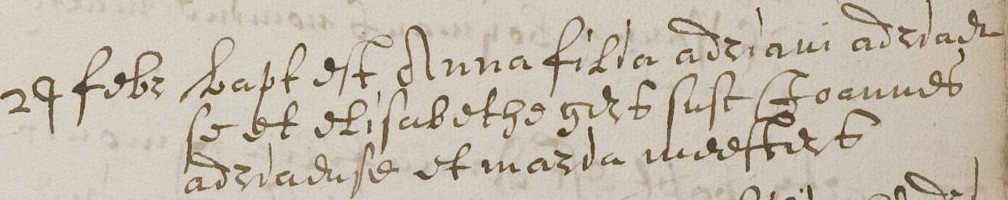 24 febr bapt est Anna filia adriani adriaen
se et elisabethe gerts susc Joannes
adriaense et maria meesters